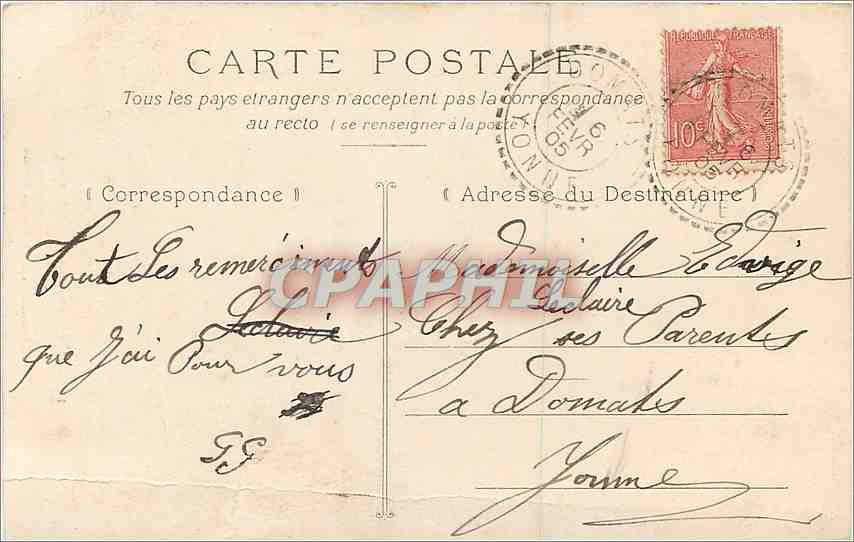 CARTE POSTALE
Tous les pays etrangers n'acceptent pas la correspondance
au recto (se renseigner à la poste)
RÉPUBLIQUE FRANÇAISE
10c
DOMATS
6
FEVR
05
YONNE
Correspondance
Tout Les remerciments
Leclaire
que J'ai Pour vous
GG
Adresse du Destinataire
Mademoiselle Edwige
Leclaire
Chez ses Parents
a Domats
Yonne
CPAPHIL